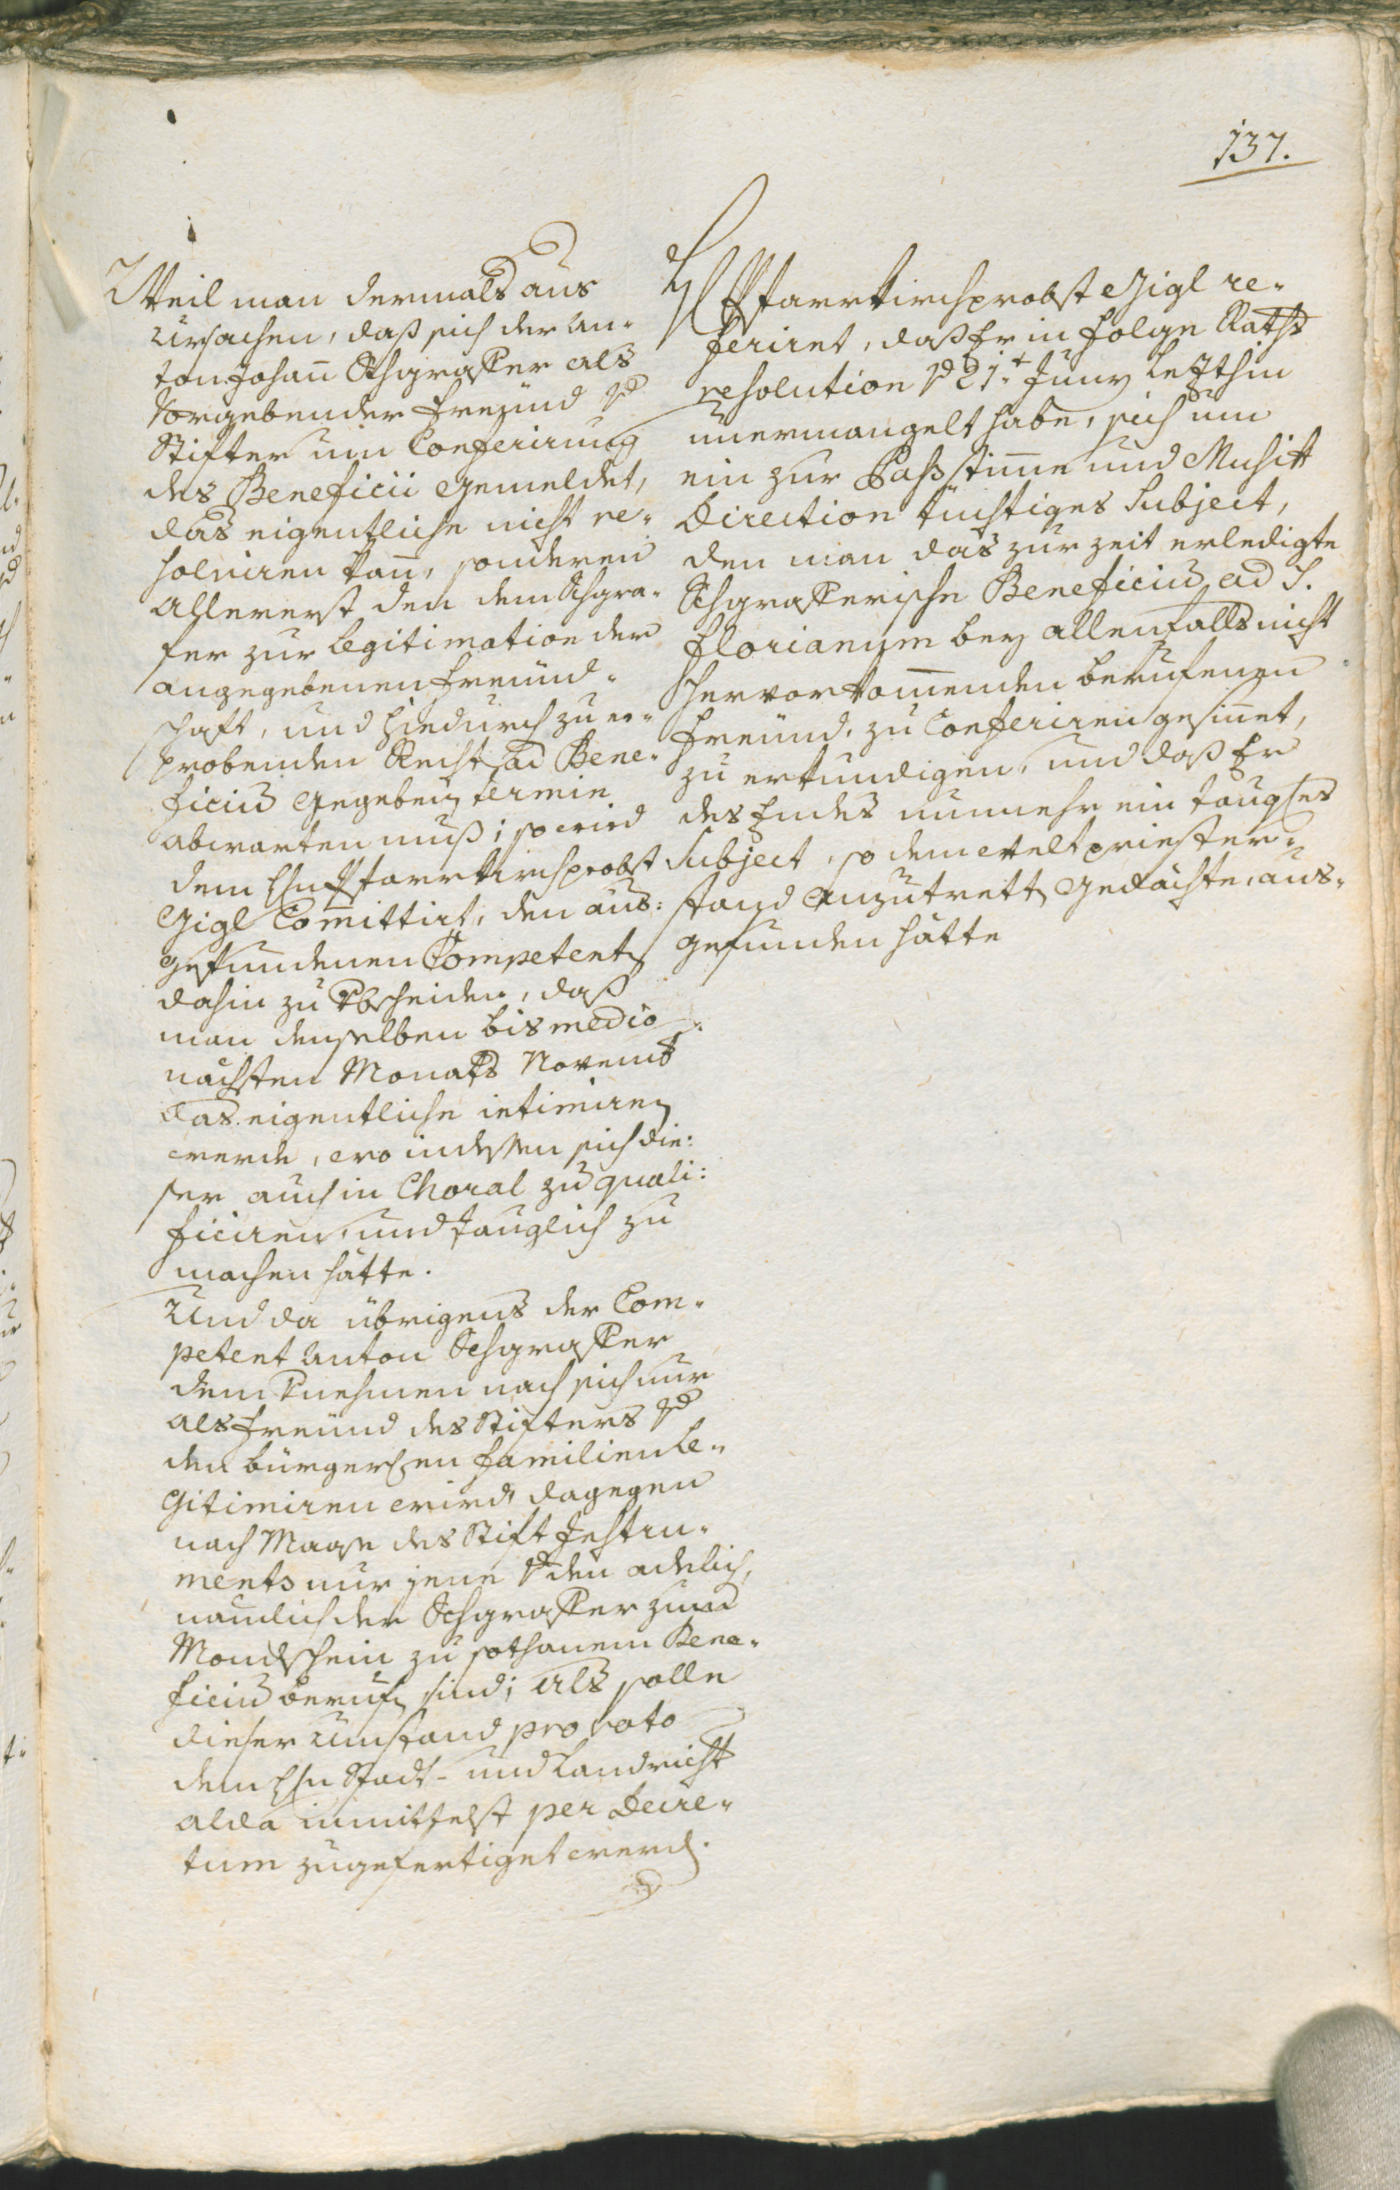 137.
Weil man dermals aus
Ursachen, daß sich der An-
ton Johan̄ Schgraffer als
Vorgebender Freund v
Stifter um Conferirung
des Beneficii gemeldet,
das eigentliche nicht re-
solviren kan̄, sonderen
Allererst den dem Schgra-
fer zur Legitimation der
angegebenen Freund-
schaft, und hiedurch zu er-
probenden Recht ad Bene-
ficiū gegeben termin
abwarten muß; so wird
dem Hn Pfarrkirchprobst
Gigl Com̄ittirt, den aus-
gefundenen Competent
dahin zu Vbscheiden, daß
man denselben bis medio
nächsten Monaths Novemb
das eigentliche intimiren
werde, wo indessen sich die-
ser auch in Choral zu quali-
ficiren, und tauglich zu
machen hätte.
Und da übrigens der Com-
petent Anton Schgraffer
dem Vnehmen nach sich nur
als Freund des Stifters v
der bürgerlen Familien le-
gitimiren wird, dagegen
nach Maas des Stift Instru-
ments nur jene v der adelich,
nāmlich der Schgraffer zum
Mondschein zu sothanem Bene-
ficiū beruf sind; Als solle
dieser Umstand pro nota
dem Hn Stadt- und Landricht
alda inmittelst per Decre-
tum zugefertiget werd.
H Pfarrkirchprobst Gigl re-
feriret, daß Er in Folge Raths
resolution v 21t Juny letzthin
unermangelt habe, sich um
ein zur Paßstim̄e und Musik
Direction tüchtiges Subject,
dem man das zur zeit erledigte
Schgrafferische Beneficiū ad S.
Florianum bey allenfalls nicht
hervorkom̄enden beruhenen
Freund, zu Conferiren gesin̄et,
zu erkundigen, und daß Er
des Endes nunmehr ein taugles
Subject, so dem Weltpriester-
stand anzutrett gedächte, aus-
gefunden hätte